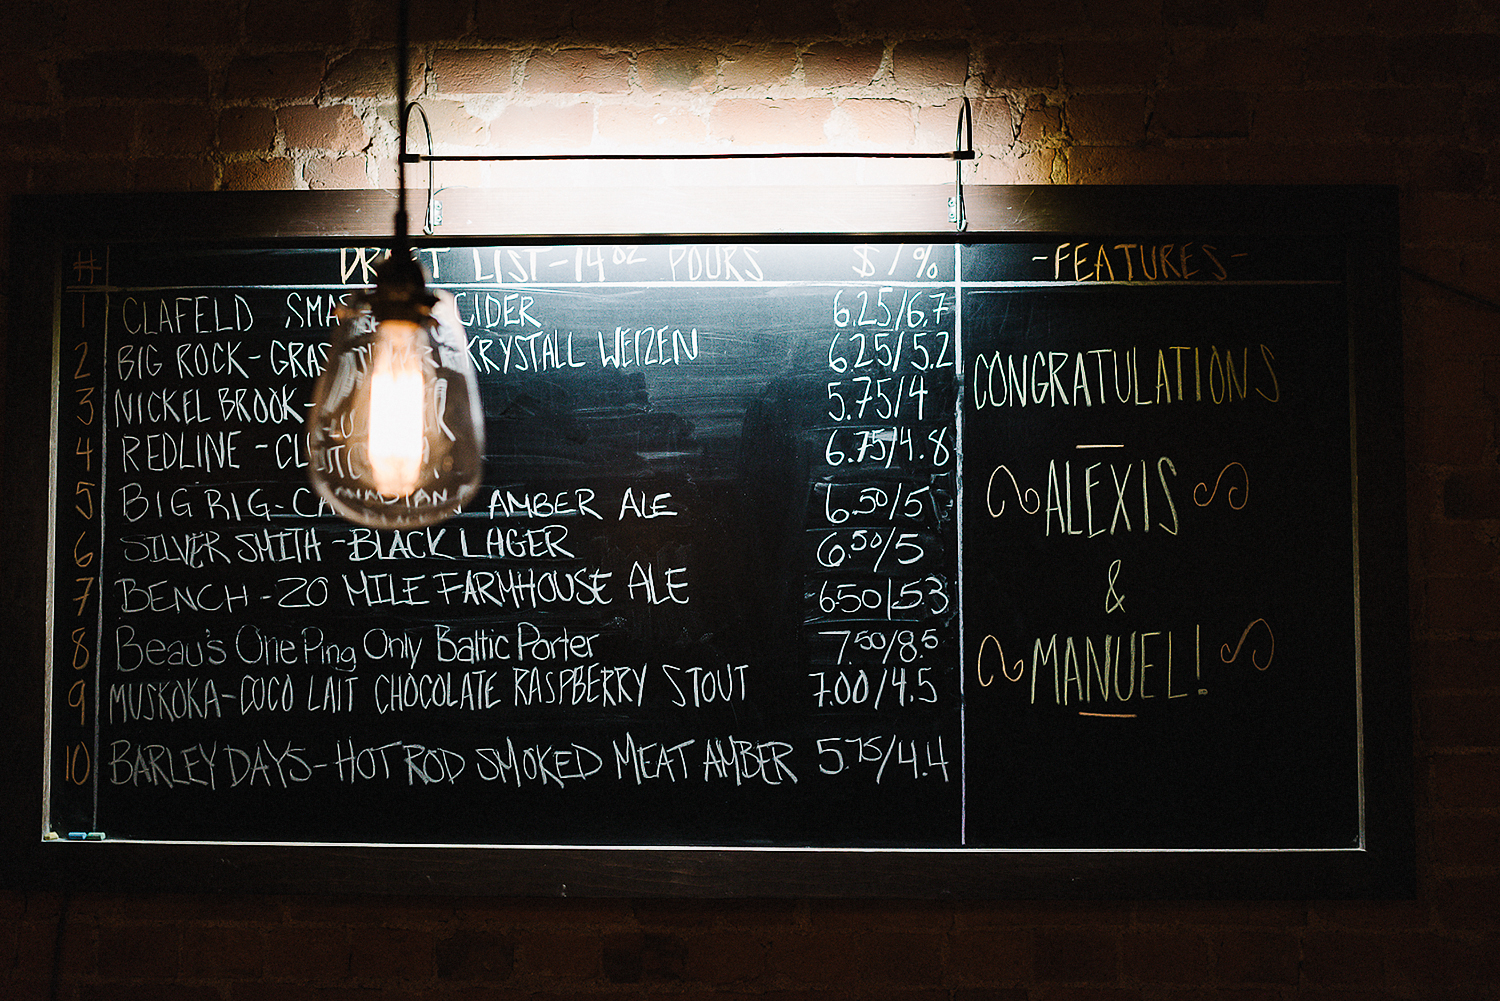 # DRAFT LIST-14oz POURS $/% -FEATURES-
1 CLAFELD CIDER 6.25/6.7
2 BIG ROCK- KRYSTALL WEIZEN 6.25/5.2
3 NICKEL BROOK- 5.75/4
4 REDLINE - 6.75/4.8
5 BIG RIG- AMBER ALE 6.50/5
6 SILVERSMITH -BLACK LAGER 6.50/5
7 BENCH -20 MILE FARMHOUSE ALE 6.50/5.3
8 Beau's One Ping Only Baltic Porter 7.50/8.5
9 MUSKOKA-COCO LAIT CHOCOLATE RASPBERRY STOUT 7.00/4.5
10 BARLEY DAYS-HOT ROD SMOKED MEAT AMBER 5.75/4.4
CONGRATULATIONS
ALEXIS
&
MANUEL!